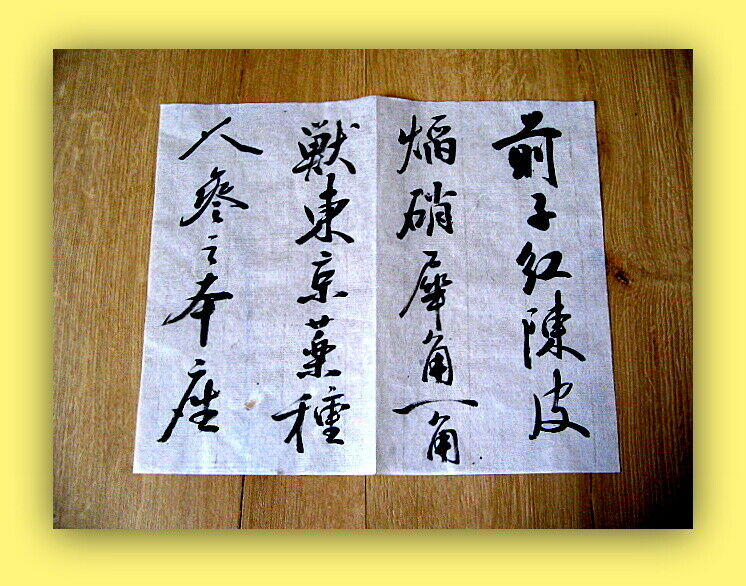 前子紅陳皮
焔硝犀角一角
獣東京薬種
人参之本座